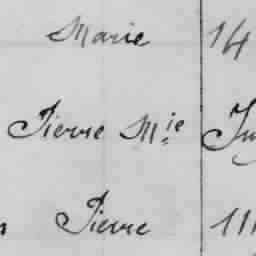 Marie 14
Pierre Mie
Pierre